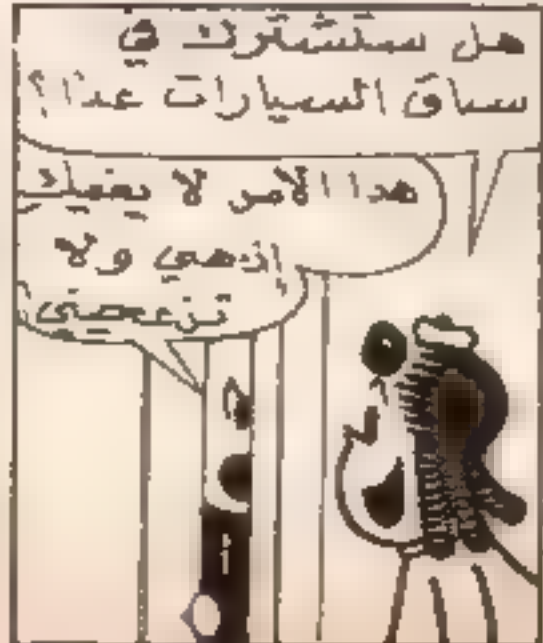 هل ستشترك في
سباق السيارات غدا؟
هذا الأمر لا يعنيك
اذهبي ولا
تزعجيني